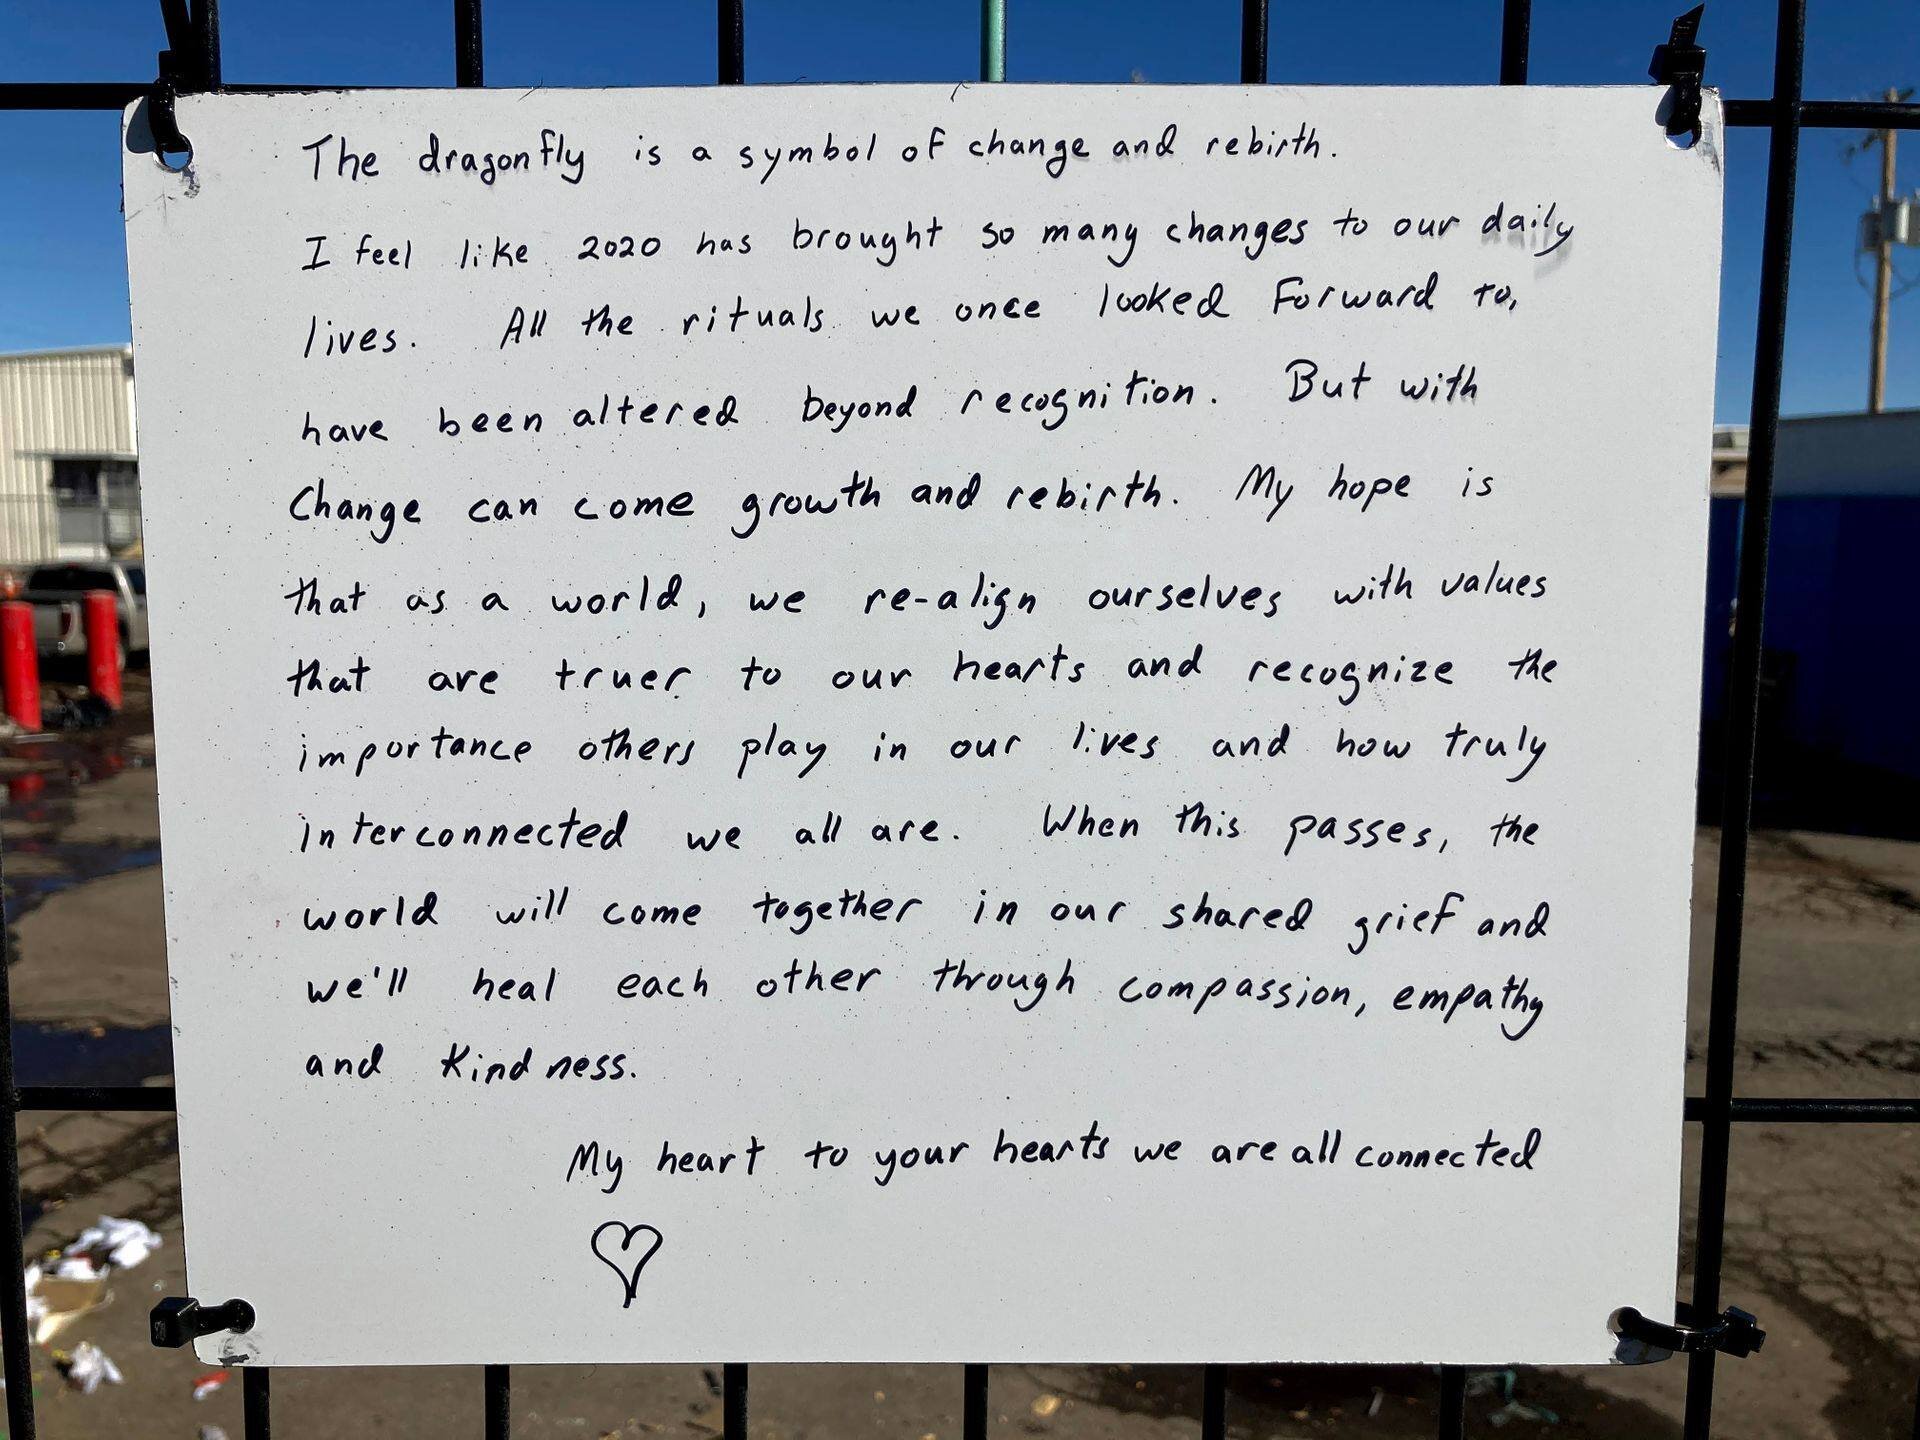 The dragonfly is a symbol of change and rebirth.
I feel like 2020 has brought so many changes to our daily
lives. All the rituals we once looked forward to,
have been altered beyond recognition. But with
Change can come growth and rebirth. My hope is
that as a world, we re-align ourselves with values
that are truer to our hearts and recognize the
importance others play in our lives and how truly
interconnected we all are. When this passes, the
world will come together in our shared grief and
we'll heal each other through compassion, empathy
and kindness.
My heart to your hearts we are all connected